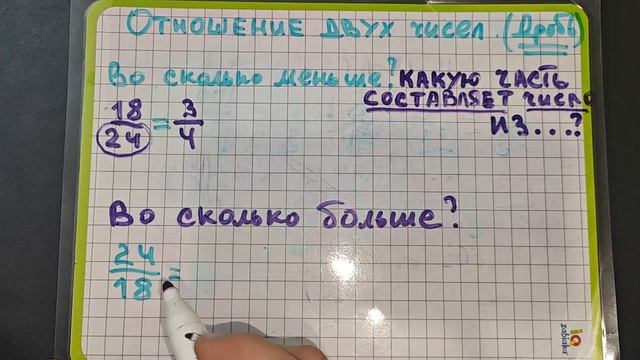 ОТНОШЕНИЕ ДВУХ чисел (Дробь)
Во сколько меньше? КАКУЮ ЧАСТЬ
СОСТАВЛЯЕТ ЧИСЛО
ИЗ...?
18/24 = 3/4
Во сколько больше?
24/18 =
zagoska